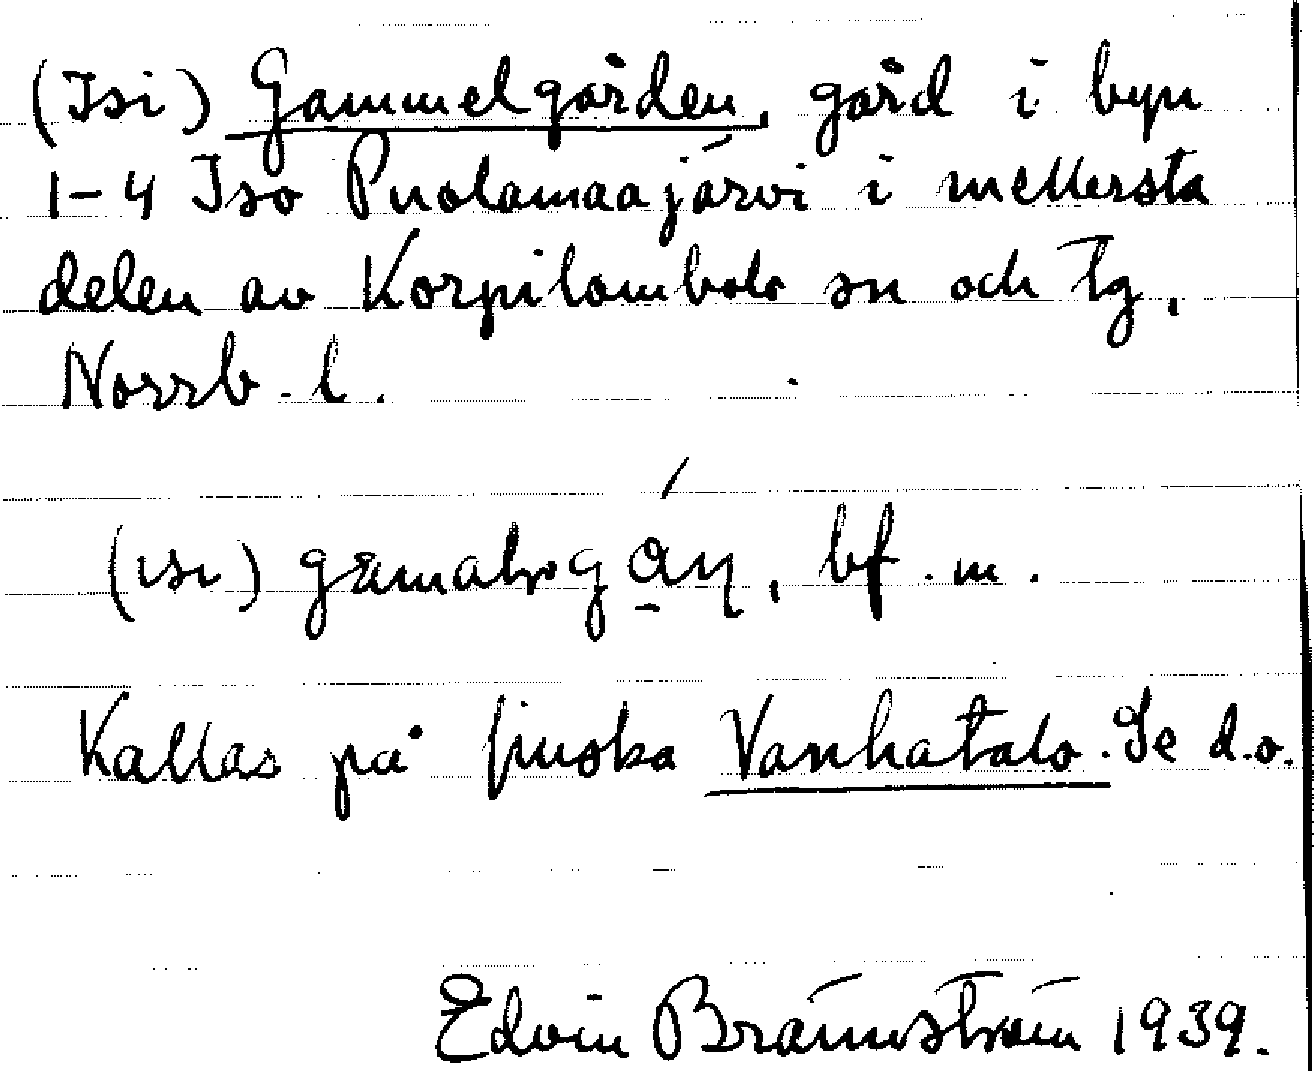 (Isi) Gammelgården, gård i byn
1-4 Iso Puolamaajärvi i mellersta
delen av Korpilombolo sn och tg,
Norrb. l.
(ısı) bf. m.
Kallas på finska Vanhatalo. Se d.o.
Edvin Brännström 1939.